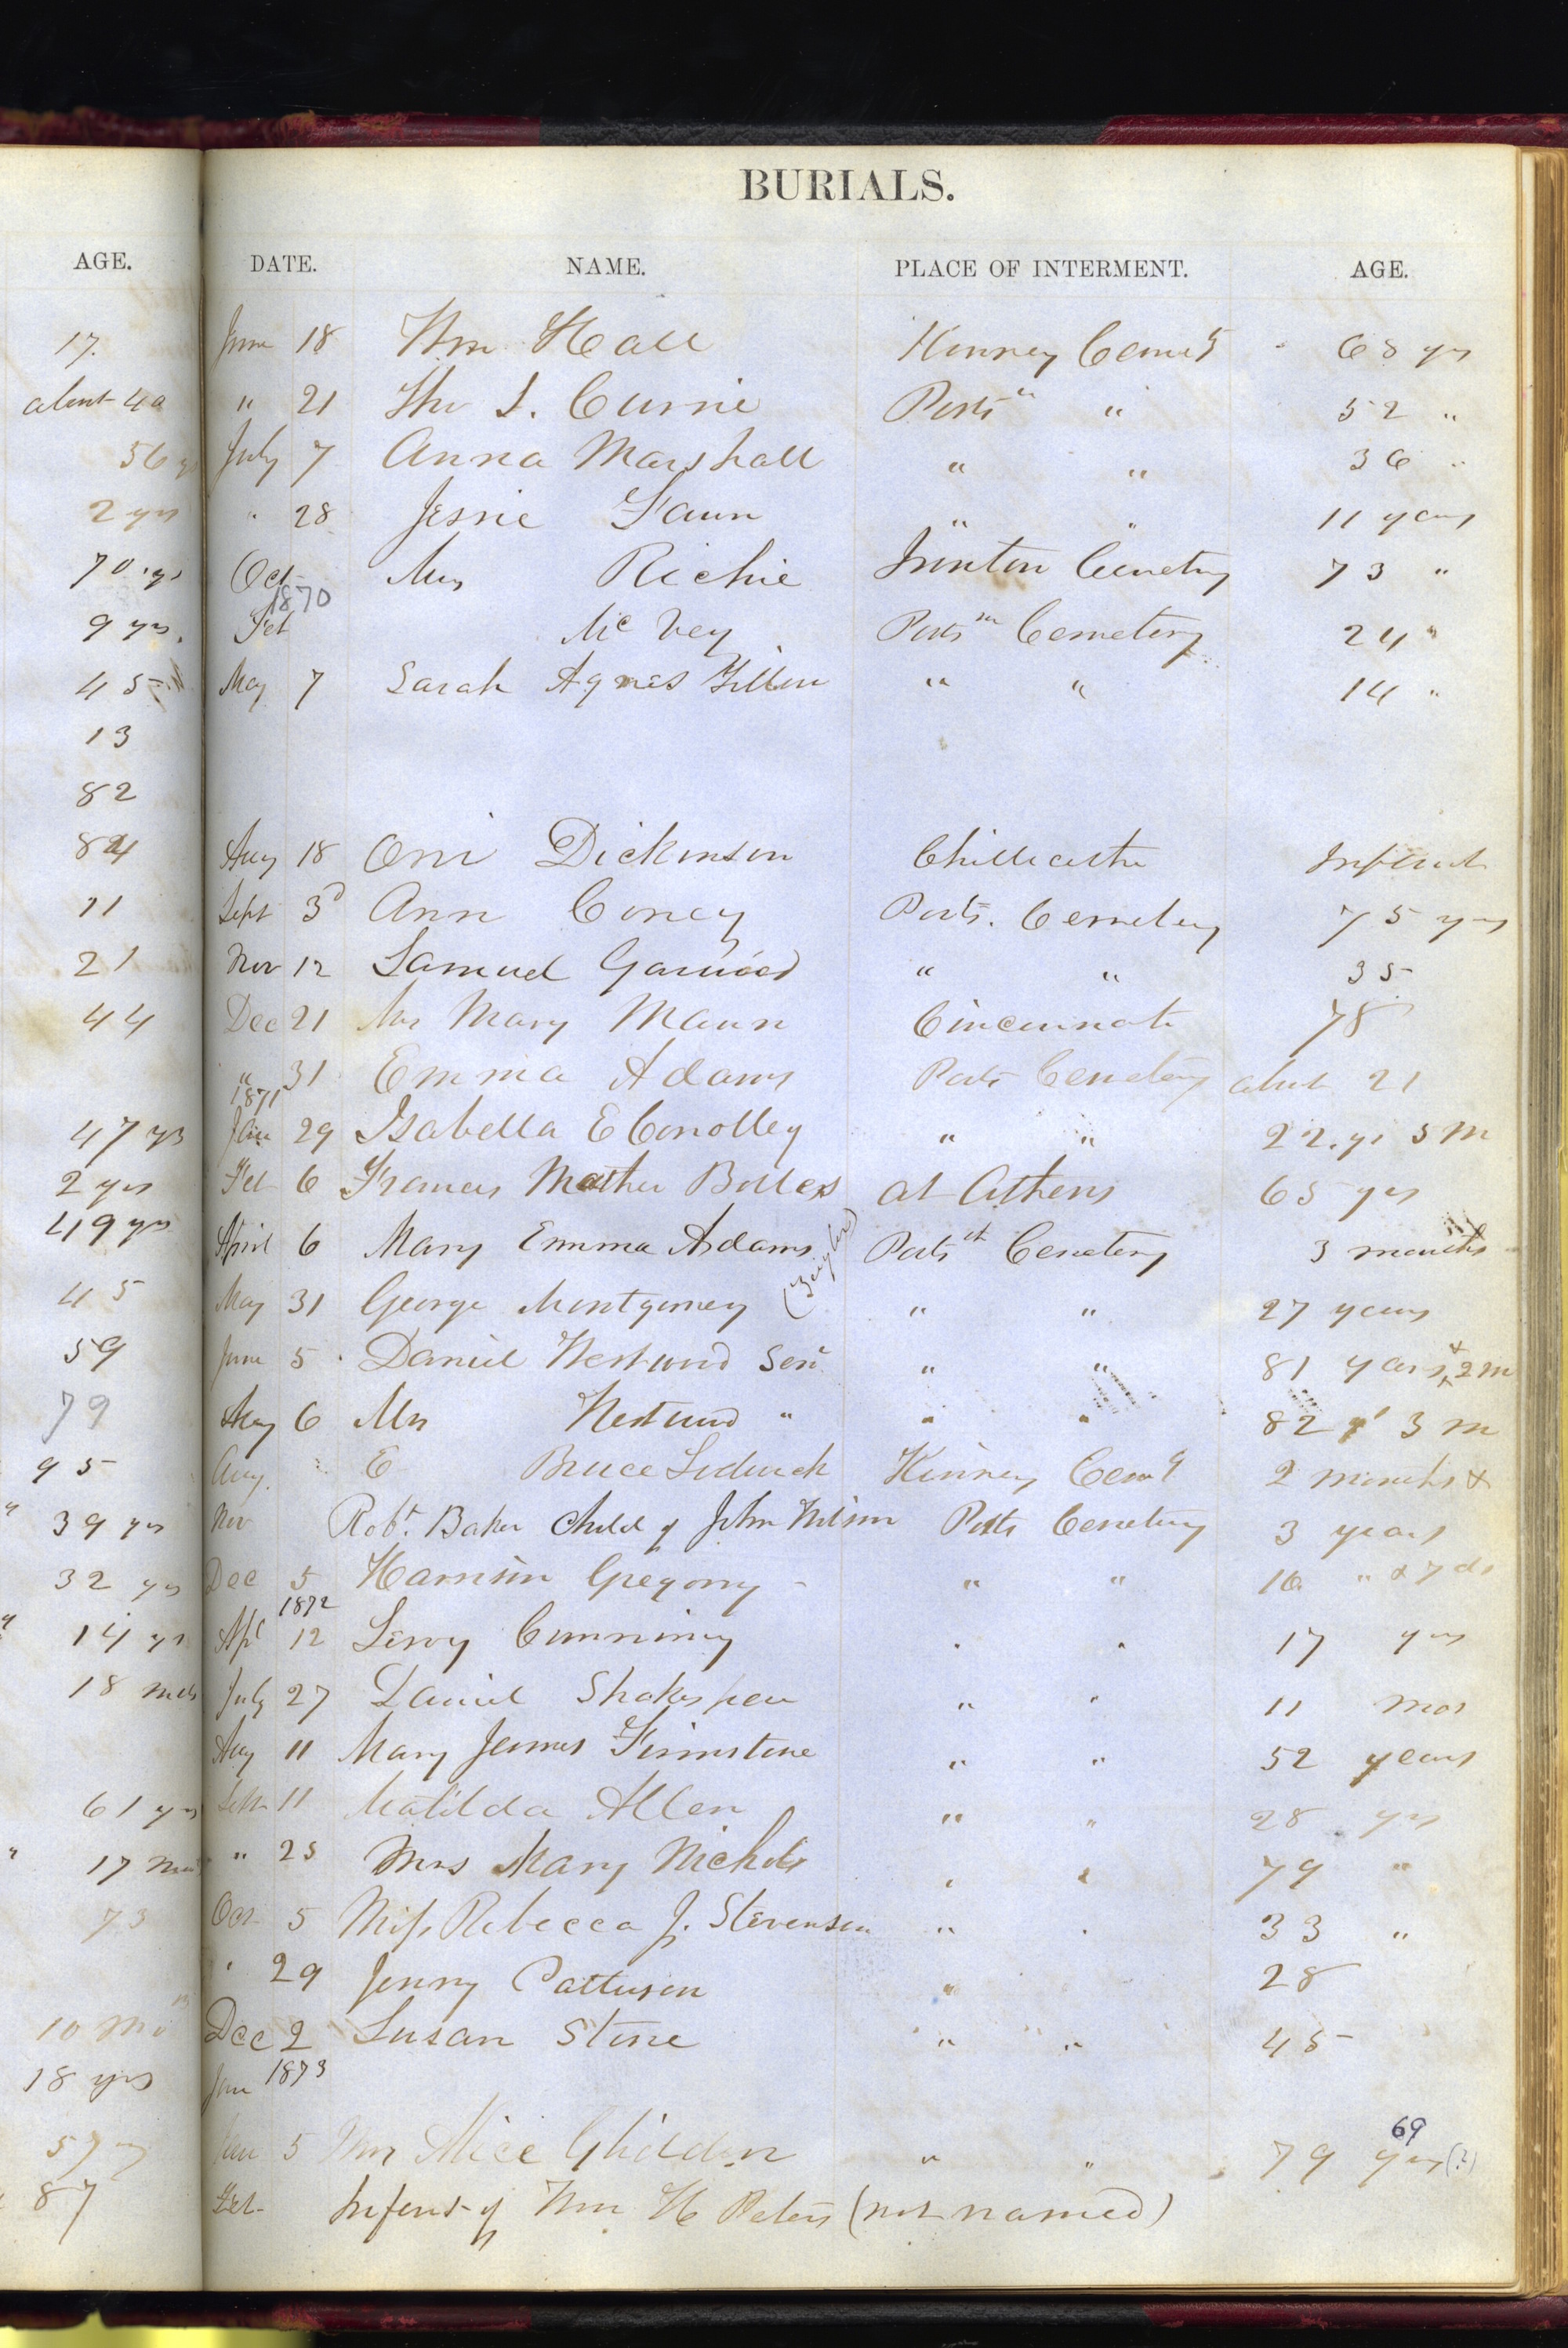 BURIALS.
AGE. DATE. NAME. PLACE OF INTERMENT. AGE.
17. June 18 Wm Hall Kinney Cemety 68 yrs
about 40 " 21 Tho J. Currie Ports " 52 "
56 yrs July 7 Anna Marshall " " 36 "
2 yrs " 28 Jessie Fawn " " 11 years
70 yrs Oct Mrs Richie Ironton Cemetery 73 "
1870
9 yrs. Feb McVey Ports Cemetery 24 "
45 May 7 Sarah Agnes " " 14 "
13
82
84 Aug 18 Orri Dickinson Chillicothe Infant
11 Sept 3d Ann Coney Ports. Cemetery 75 yrs
21 Nov 12 Samuel Garwood " " 35
44 Dec 21 Mrs Mary Mann Cincinnati 78
" 31 Emma Adams Ports Cemetery about 21
1871
47 yrs Jan 29 Isabella E Conolley " " 22 yr 5 m
2 yrs Feb 6 Frances Mather Bolles at Athens 65 yrs
49 yrs April 6 Mary Emma Adams (Zeigler) Ports Cemetery 3 months
45 May 31 George Montgomery " " 27 years
59 June 5 Daniel Westwood Senr " " 81 years & 2 m
79 6 Mrs Westwood " " " 82 yr 3 m
95 Aug. E Bruce Kinney Cemy 2 months &
" 39 yrs Nov Robt. Baker Child of John Wilson Ports Cemetery 3 years
32 yrs Dec 5 Harrison Gregory " " 10 " & 7 ds
1872
14 yrs Apl 12 Leroy " " 17 yrs
18 mos July 27 Daniel Shakespear " " 11 mos
Aug 11 Mary James Firmstone " " 52 years
61 yrs Sept 11 Matilda Allen " " 28 yrs
" 17 mos " 25 Mrs Mary Nichols " " 79 "
73 Oct 5 Miss Rebecca J. Stevenson " " 33 "
" 29 Jenny Patterson " 28
10 mo Dec 2 Susan Stone " " 45
18 yrs Jan 1873
69
57 Jan 5 Mrs Alice Glidden " " 79 yrs (?)
87 Feb Infant of Wm H Peters (not named)